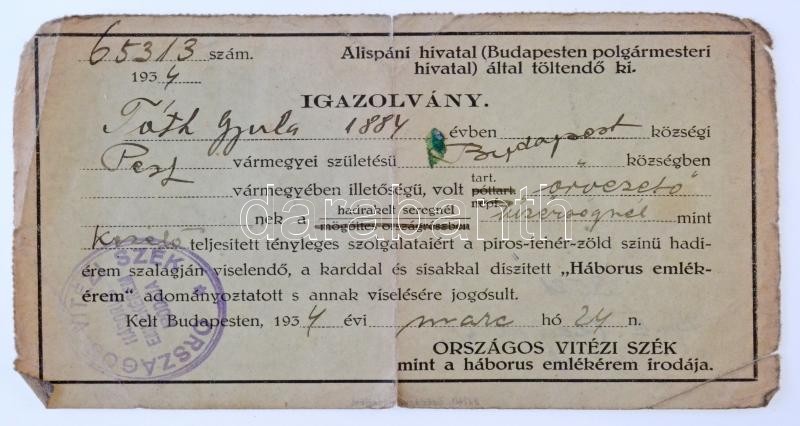 65313 szám.
1934
Alispáni hivatal (Budapesten polgármesteri
hivatal) által töltendő ki.
IGAZOLVÁNY.
Tóth Gyula 1884 évben Budapest községi
Pest vármegyei születésű „ községben
vármegyében illetőségű, volt tart. póttart. népf. őrvezető
nek a hadrakelt seregnél mögöttes országrészben mint
teljesitett tényleges szolgálataiért a piros-fehér-zöld szinű hadi-
érem szalagján viselendő, a karddal és sisakkal diszitett „Háborus emlék-
érem" adományoztatott s annak viselésére jogósult.
Kelt Budapesten, 1934 évi marc hó 24 n.
ORSZÁGOS VITÉZI SZÉK
mint a háborus emlékérem irodája.
ORSZÁGOS VITÉZI SZÉK
darabanth.com